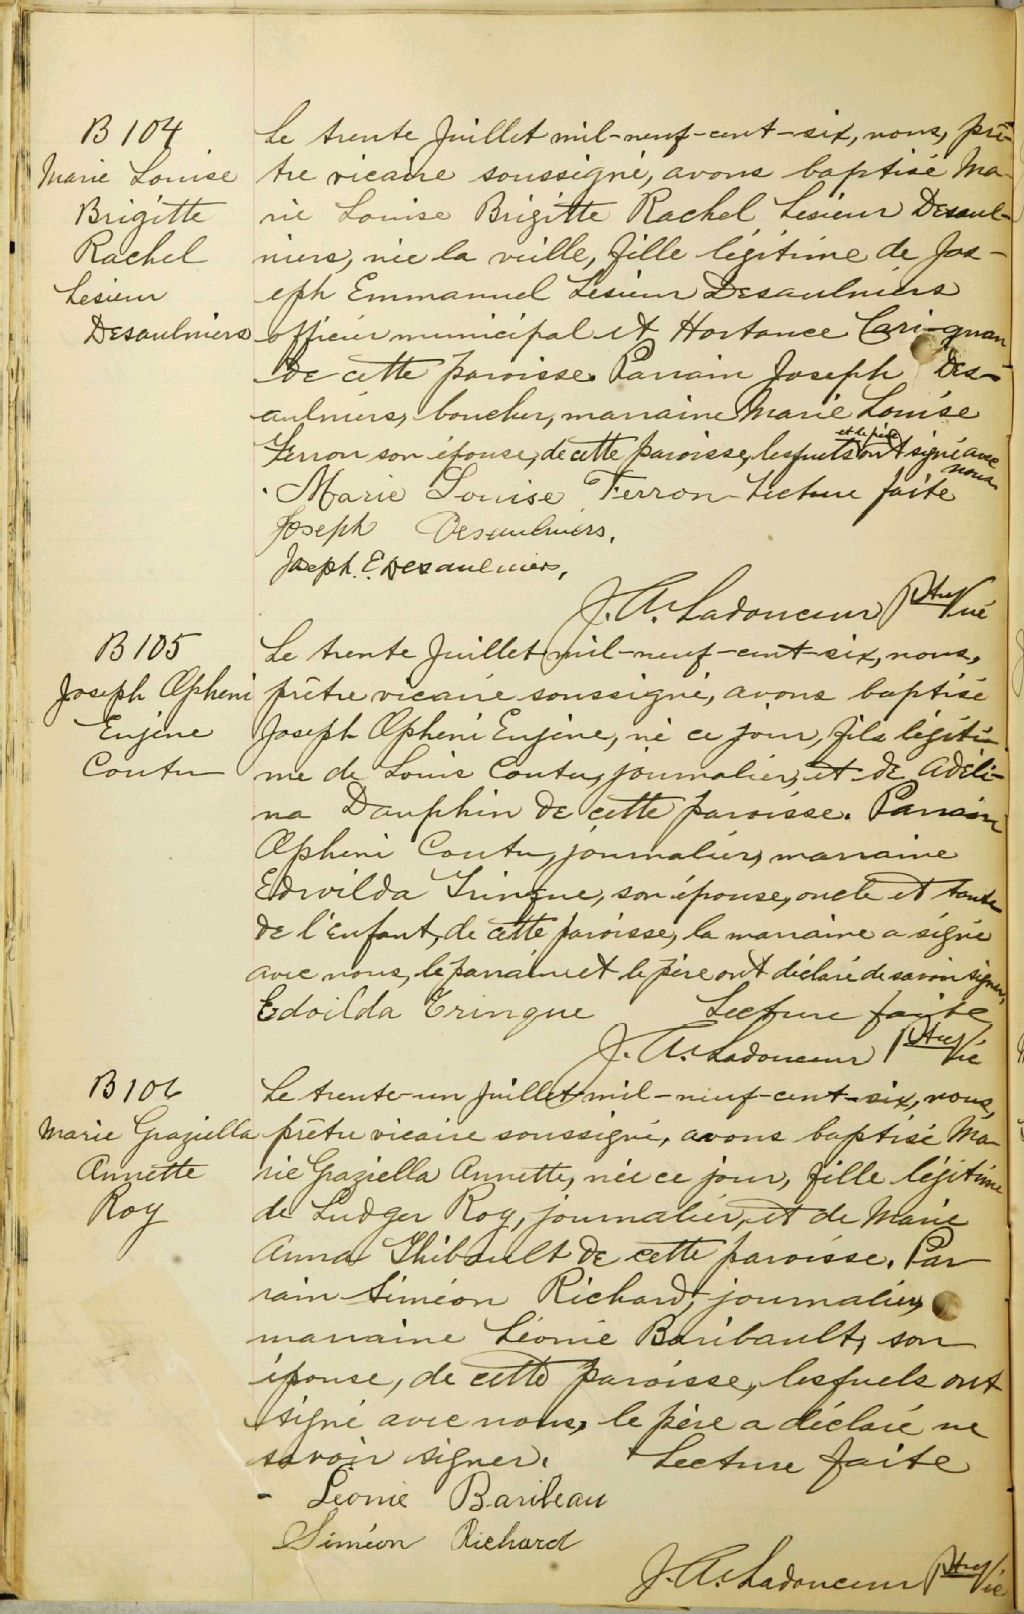 B 104
Marie Louise
Brigitte
Rachel
Lesieur
Desaulniers
Le trente Juillet mil-neuf-cent-six, nous, prê-
tre vicaire soussigné, avons baptisé Ma-
rie Louise Brigitte Rachel Lesieur Desaul-
niers, née la veille, fille légitime de Jos-
eph Emmanuel Lesieur Desaulniers
officier municipal et Hortance Cari-gnan
de cette paroisse. Parrain Joseph Des-
aulniers, boucher, marraine Marie Louise
Ferron son épouse, de cette paroisse, lesquels et le père ont signé avec
nous.
Marie Louise Ferron Lecture faite
Joseph Desaulniers.
Joseph. E. Desaulniers,
J. A. Ladouceur Ptre Vic
B 105
Joseph Œpheni
Eugène
Coutu
Le trente Juillet mil-neuf-cent-six, nous,
prêtre vicaire soussigné, avons baptisé
Joseph Œpheni Eugène, né ce jour, fils légiti-
me de Louis Coutu, journalier, et de Adéli-
na Dauphin de cette paroisse. Parrain
Œpheni Coutu, journalier, marraine
Edwilda Tringue, son épouse, oncle et tante
de l'enfant, de cette paroisse, la marraine a signé
avec nous, le parrain et le père ont déclaré de savoir signer,
Edvilda Tringue Lecture faite
J. A. Ladouceur Ptre Vic
B 106
Marie Graziella
Annette
Roy
Le trente-un Juillet mil-neuf-cent-six, nous,
prêtre vicaire soussigné, avons baptisé Ma-
rie Graziella Annette, née ce jour, fille légitime
de Ludger Roy, journalier, et de Marie
Anna Thibault de cette paroisse. Par-
rain Siméon Richard, journalier,
marraine Léonie Baribault, son
épouse, de cette paroisse, lesquels ont
signé avec nous, le père a déclaré ne
savoir signer. Lecture faite
- Léonie Baribeau
Siméon Richard
J. A. Ladouceur Ptre Vic